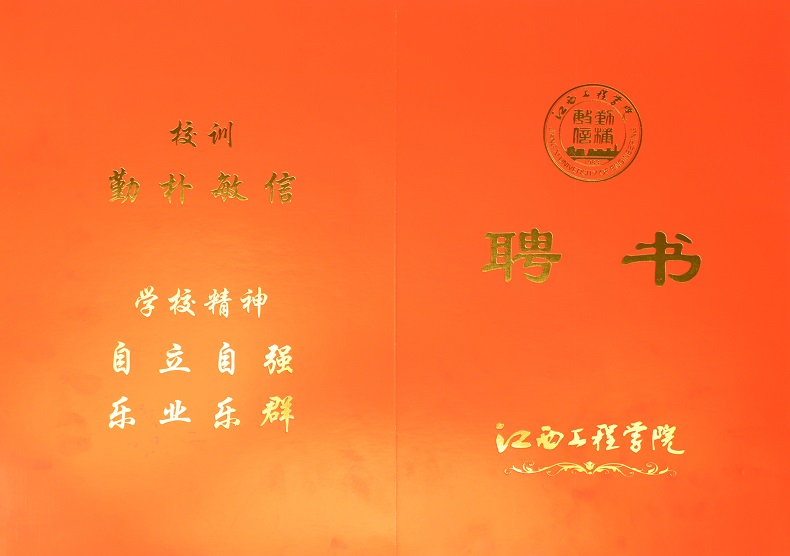 校训
勤朴敏信
学校精神
自立自强
乐业乐群
江西工程学院
勤朴敏信
JIANGXI UNIVERSITY OF ENGINEERING
聘书
江西工程学院